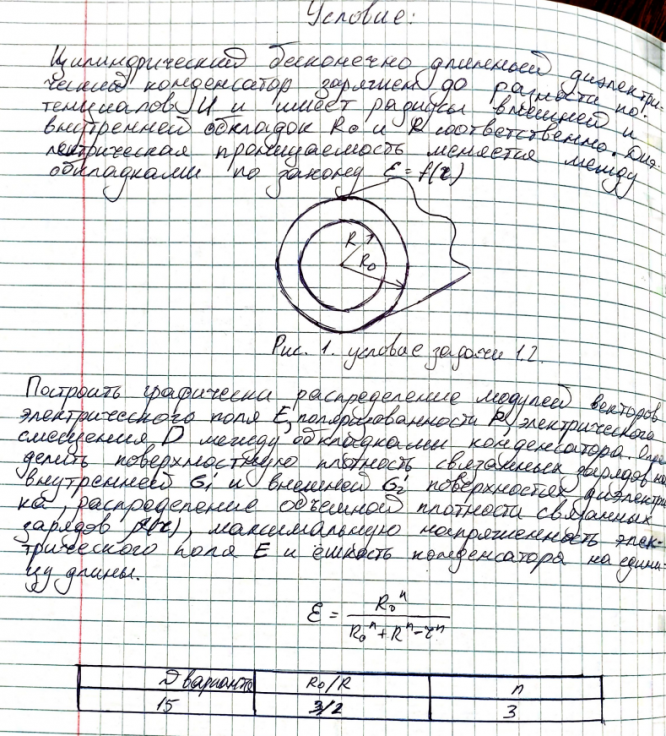 Условие:
Цилиндрический бесконечно длинный диэлектри-
ческий конденсатор заряжен до разности по-
тенциалов U и имеет радиусы внешней и
внутренней обкладок R₀ и R соответственно. Диэ-
лектрическая проницаемость меняется между
обкладками по закону ε = f(r)
R
R₀
Рис. 1. условие задачи 1.2.
Построить графически распределение модулей векторов
электрического поля E, поляризованности P, электрического
смещения D между обкладками конденсатора. Опре-
делить поверхностную плотность связанных зарядов на
внутренней σ₁' и внешней σ₂' поверхностях диэлектри-
ка, распределение объёмной плотности связанных
зарядов ρ'(r), максимальную напряженность элек-
трического поля E и ёмкость конденсатора на едини-
цу длины.
ε = R₀ⁿ / (R₀ⁿ + Rⁿ - rⁿ)
варианта R₀/R n
15 3/2 3